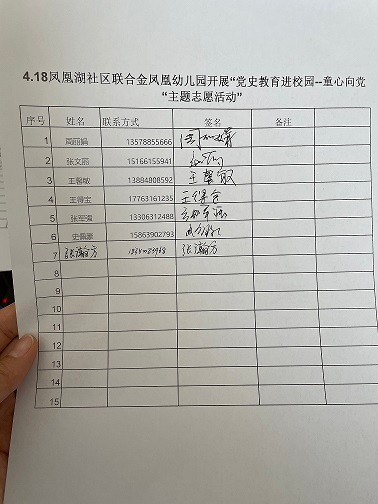 4.18凤凰湖社区联合金凤凰幼儿园开展“党史教育进校园--童心向党
“主题志愿活动”
序号 姓名 联系方式 签名 备注
1 周丽娟 13578855666
2 张文丽 15166155941
3 王馨敏 13884808592 王馨敏
4 王得宝 17763161235 王得宝
5 张军强 13306312488 张军强
6 史佩豪 15863902793
7 张瀚方 张瀚方
8
9
10
11
12
13
14
15